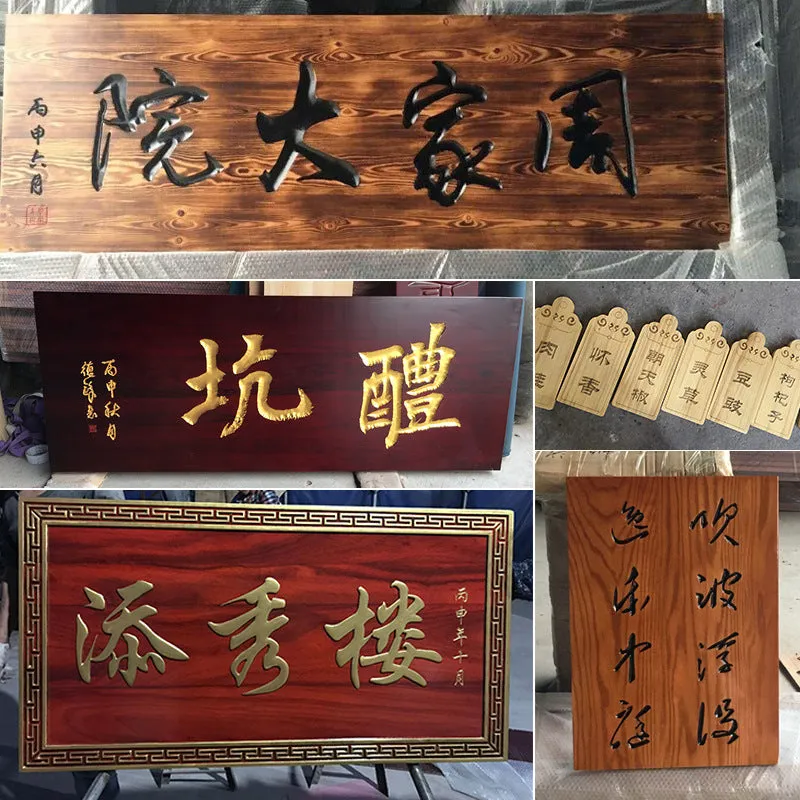 周家大院
丙申六月
醴坑
丙申秋月
肉桂
怀香
朝天椒
灵草
豆豉
枸杞子
添秀楼
丙申年十月
吹波浮